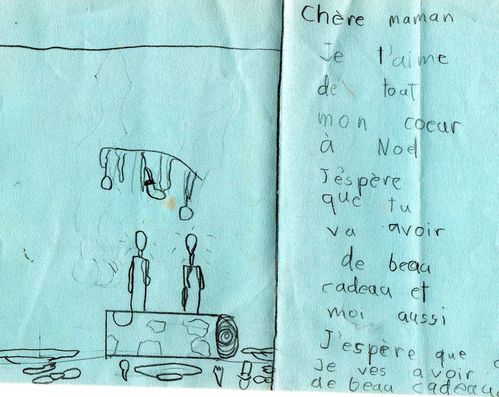 Chère maman
Je t'aime
de tout
mon coeur
à Noël
J'éspère
que tu
va avoir
de beau
cadeau et
moi aussi
J'espère que
Je ves avoir
de beau cadeau